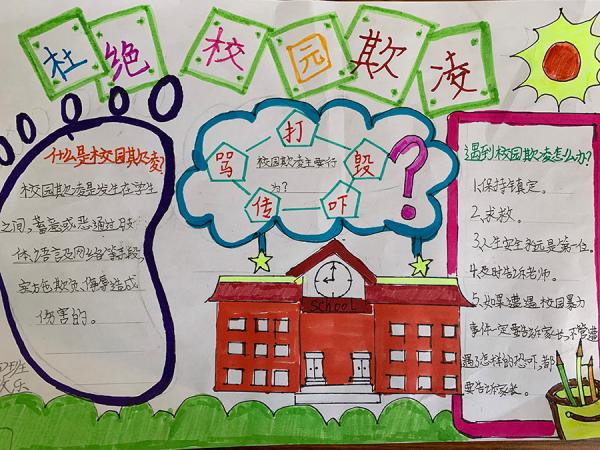 杜绝校园欺凌
什么是校园欺凌?
校园欺凌是发生在学生
之间,蓄意或恶意通过肢
体、语言及网络等手段,
实施欺负、侮辱造成
伤害的。
打
骂
毁
传
吓
校园欺凌主要行
为?
?
school
遇到校园欺凌怎么办?
1.保持镇定。
2.求救。
3.人生安全永远是第一位。
4.及时告诉老师。
5.如果遭遇校园暴力
事件一定要告诉家长,不管遭
遇了怎样的恐吓,都
要告诉家长。
班
乐